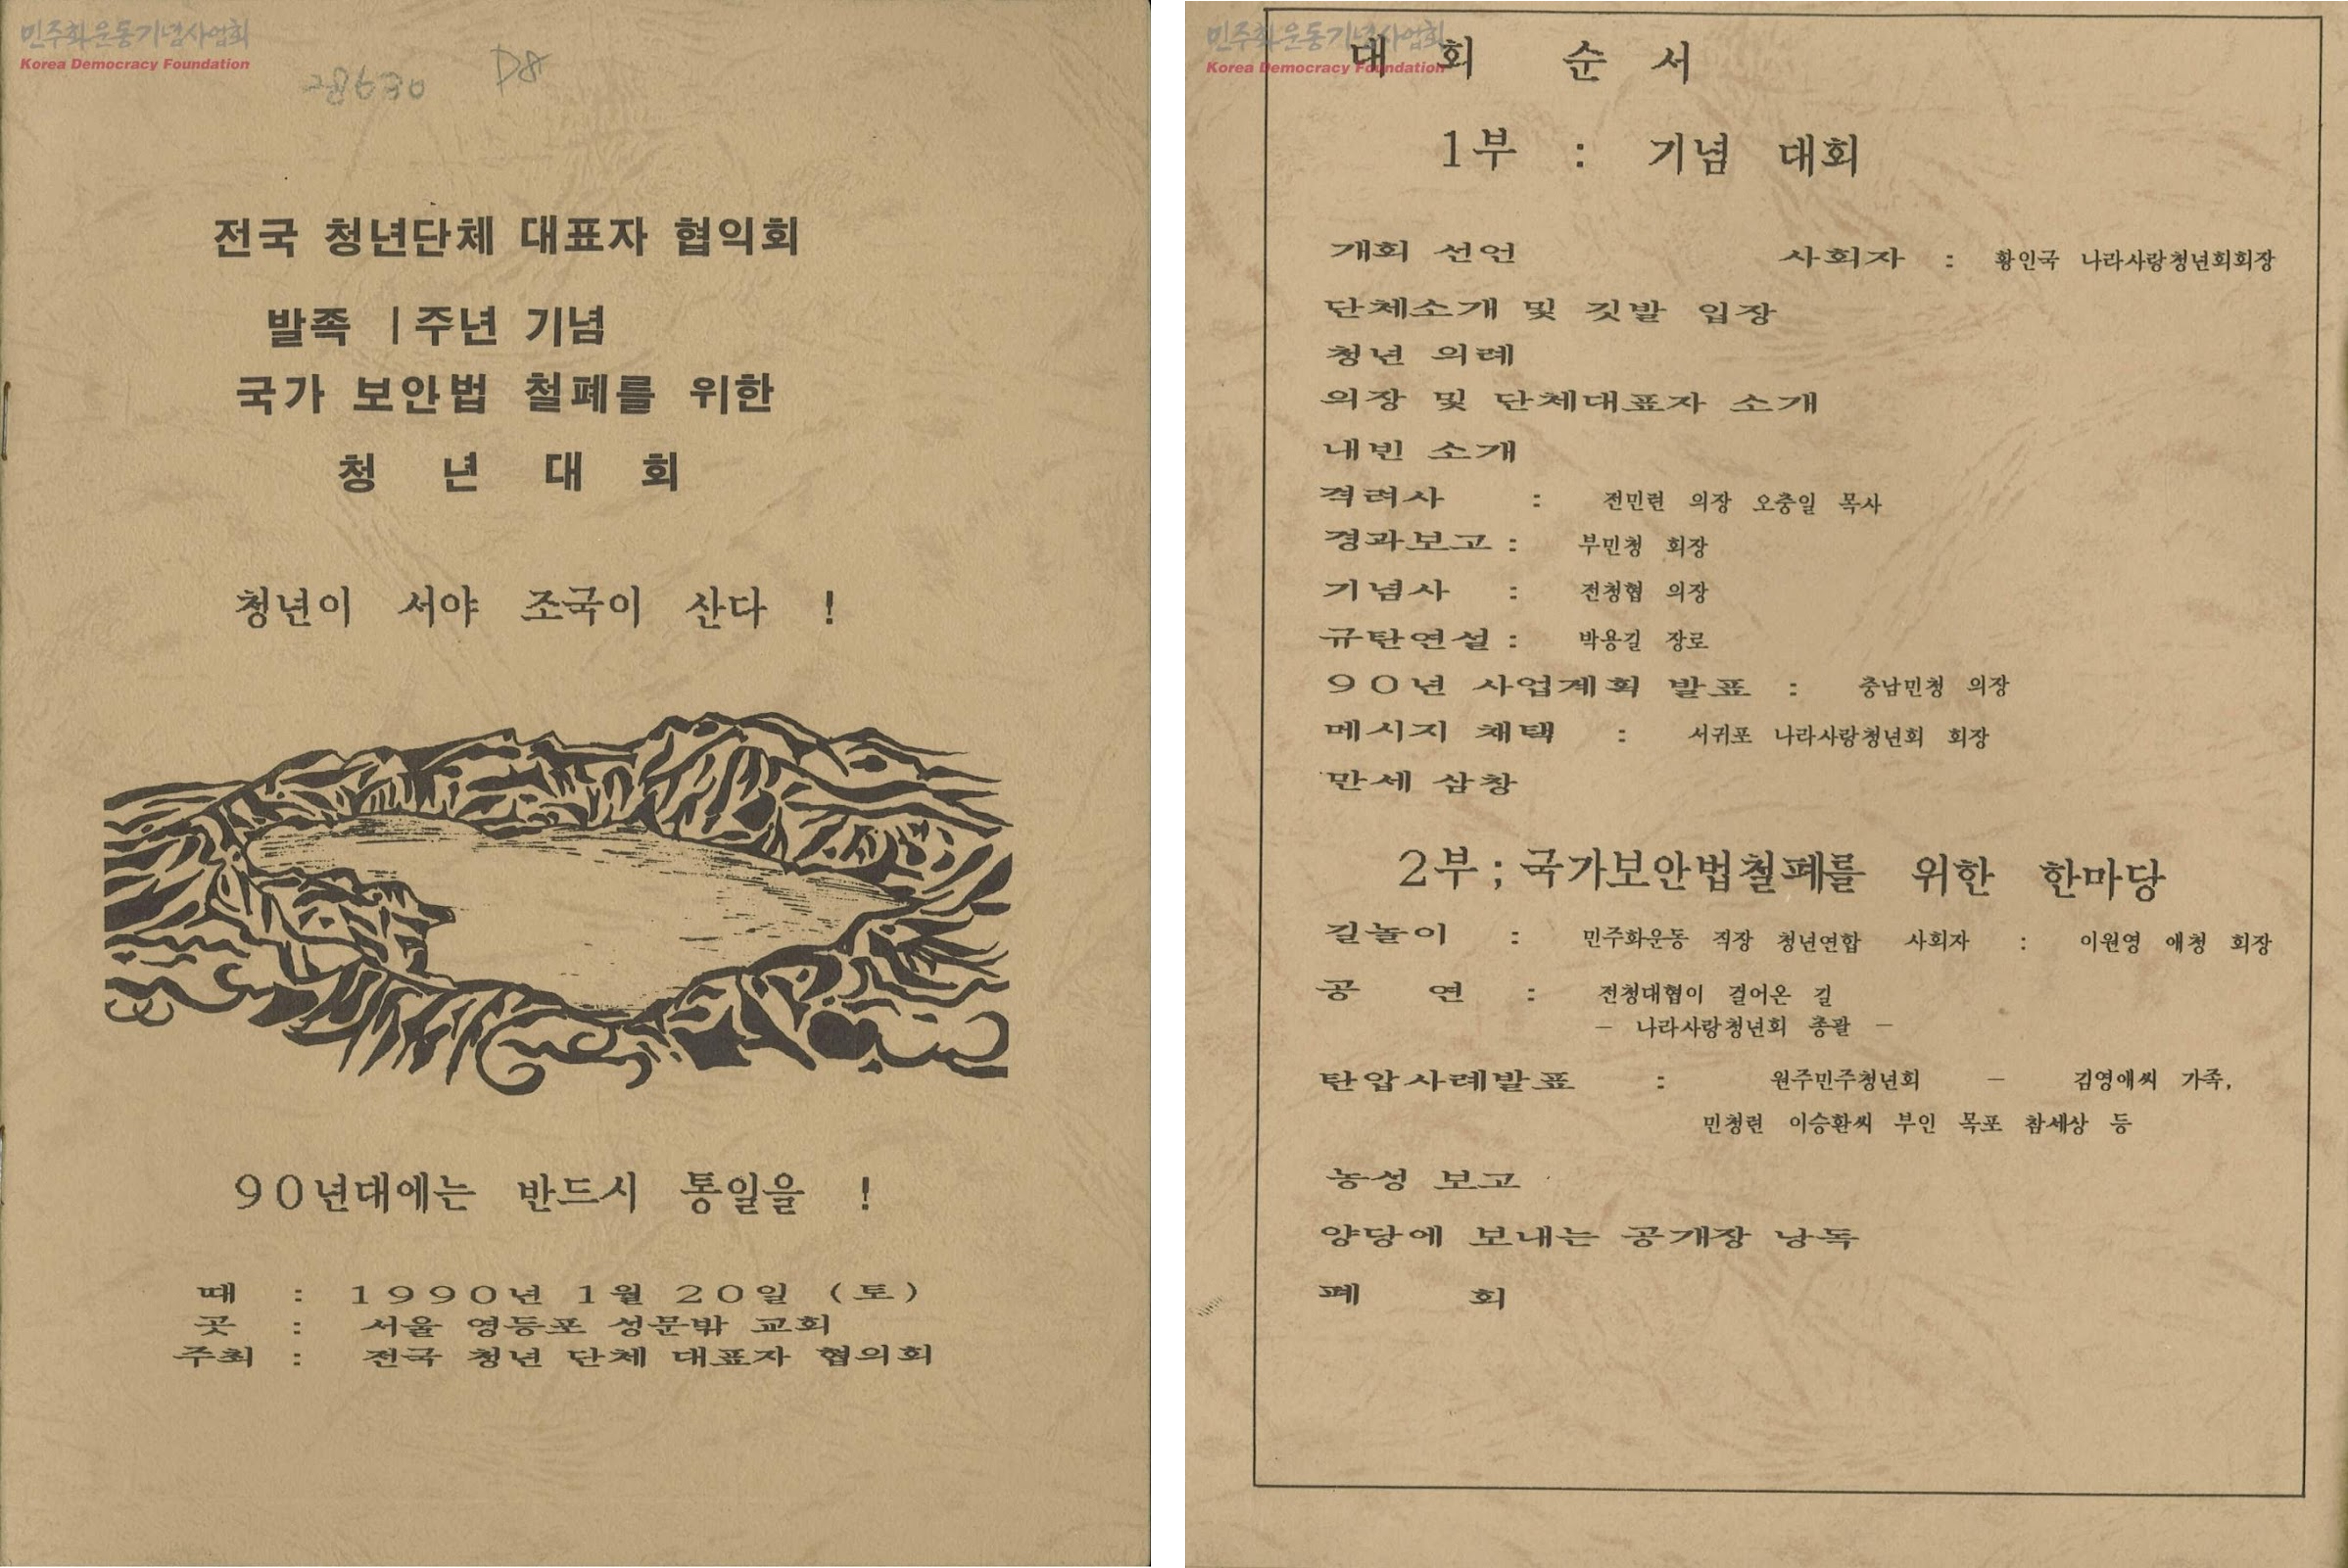 민주화운동기념사업회
Korea Democracy Foundation
28630 D8
전국 청년단체 대표자 협의회
발족 1주년 기념
국가 보안법 철폐를 위한
청 년 대 회
청년이 서야 조국이 산다 !
90년대에는 반드시 통일을 !
때 : 1990년 1월 20일 (토)
곳 : 서울 영등포 성문밖 교회
주최 : 전국 청년 단체 대표자 협의회
민주화운동기념사업회
Korea Democracy Foundation
대 회 순 서
1부 : 기념 대회
개회 선언 사회자 : 황인국 나라사랑청년회회장
단체소개 및 깃발 입장
청년 의례
의장 및 단체대표자 소개
내빈 소개
격려사 : 전민련 의장 오충일 목사
경과보고 : 부민청 회장
기념사 : 전청협 의장
규탄연설 : 박용길 장로
90년 사업계획 발표 : 충남민청 의장
메시지 채택 : 서귀포 나라사랑청년회 회장
만세 삼창
2부 ; 국가보안법철폐를 위한 한마당
길놀이 : 민주화운동 직장 청년연합 사회자 : 이원영 애청 회장
공 연 : 전청대협이 걸어온 길
- 나라사랑청년회 총괄 -
탄압사례발표 : 원주민주청년회 - 김영애씨 가족,
민청련 이승환씨 부인 목포 참세상 등
농성 보고
양당에 보내는 공개장 낭독
폐 회